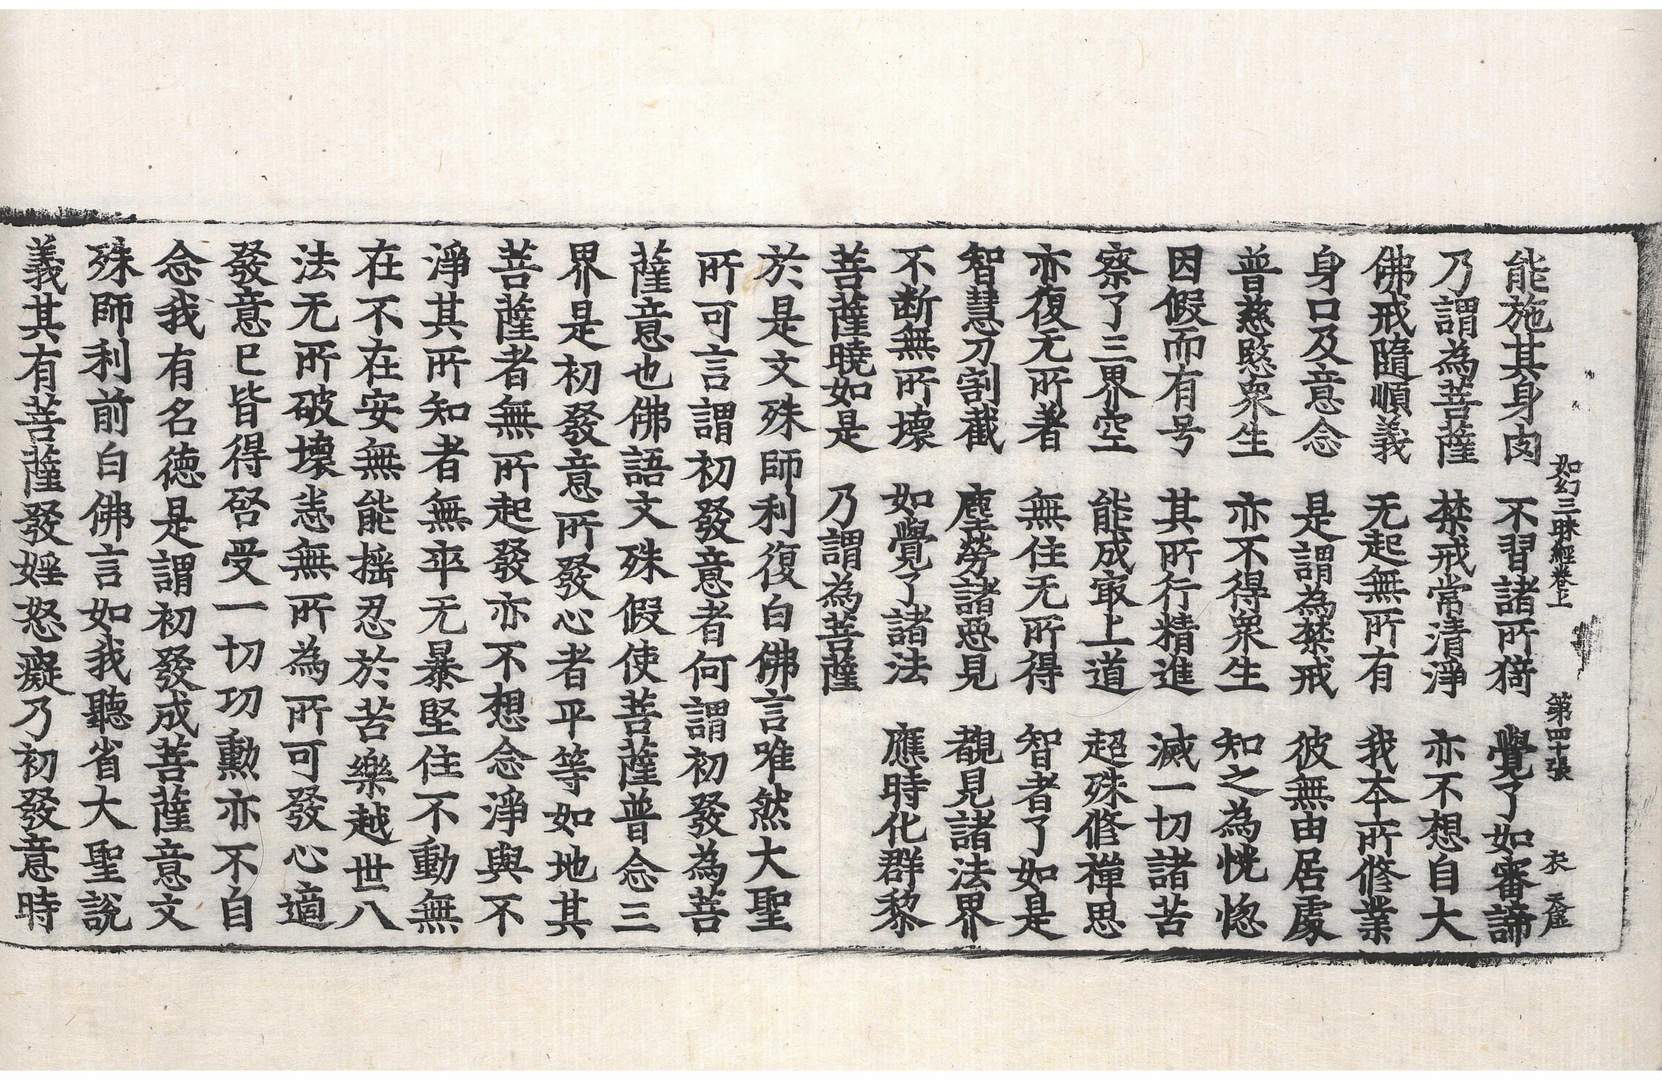 如幻三昧經卷上　第四十張　衣
能施其身肉　不習諸所猗　覺了如審諦
乃謂為菩薩　禁戒常清淨　亦不想自大
佛戒隨順義　无起無所有　我夲所修業
身口及意念　是謂為禁戒　彼無由居處
普慈愍衆生　亦不得衆生　知之為恍惚
因假而有号　其所行精進　滅一切諸苦
察了三界空　能成㝡上道　超殊修禪思
亦復无所著　無住无所得　智者了如是
智慧刀割截　塵勞諸恐見　覩見諸法界
不断無所壞　如覺了諸法　應時化群黎
菩薩曉如是　乃謂為菩薩
於是文殊師利復白佛言唯然大聖
所可言謂初發意者何謂初發為菩
薩意也佛語文殊假使菩薩普念三
界是初發意所發心者平等如地其
菩薩者無所起發亦不想念淨與不
淨其所知者無卒无暴堅住不動無
在不在安無能揺忍於苦樂越世八
法无所破壞恚無所為所可發心適
發意已皆得啓受一切功勳亦不自
念我有名德是謂初發成菩薩意文
殊師利前白佛言如我聽省大聖說
義其有菩薩發婬怒癡乃初發意時